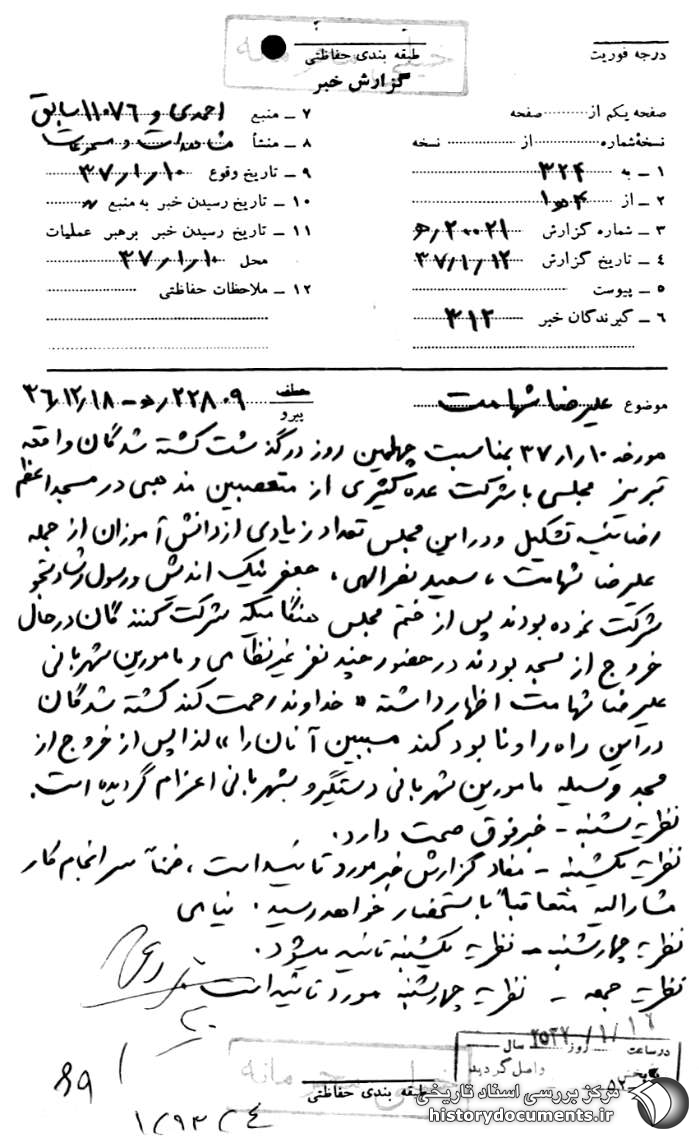 خیلی محرمانه
درجه فوریت
طبقه بندی حفاظتی
گزارش خبر
صفحه یکم از ........ صفحه
نسخه شماره ........ از ........ نسخه
۱ ـ به ۳۲۴
۲ ـ از
۳ ـ شماره گزارش ۲۰۰۲۱/ﻫ
۴ ـ تاریخ گزارش ۳۷/۱/۱۲
۵ ـ پیوست
۶ ـ گیرندگان خبر ۳۱۲
۷ ـ منبع احمدی و ۱۱۰۷۶ سابق
۸ ـ منشأ مشاهدات و مسموعات
۹ ـ تاریخ وقوع ۳۷/۱/۱۰
۱۰ ـ تاریخ رسیدن خبر به منبع "
۱۱ ـ تاریخ رسیدن خبر برهبر عملیات
محل ۳۷/۱/۱۰
۱۲ ـ ملاحظات حفاظتی
موضوع علیرضا شهامت
عطف
پیرو
۲۲۸۰۹/ﻫ - ۳۶/۱۲/۱۸
مورخه ۳۷/۱/۱۰ بمناسبت چهلمین روز درگذشت کشته شدگان واقعه
تبریز مجلسی با شرکت عده کثیری از متعصبین مذهبی در مسجد اعظم
رضائیه تشکیل و در این مجلس تعداد زیادی از دانش آموزان از جمله
علیرضا شهامت ، سعید نصرالهی ، جعفر نیک اندیش و رسول
شرکت نموده بودند پس از ختم مجلس هنگامیکه شرکت کنندگان در حال
خروج از مسجد بودند در حضور چند نفر غیرنظامی و مامورین شهربانی
علیرضا شهامت اظهار داشته « خداوند رحمت کند کشته شدگان
در این راه را و نابود کند مسببین آنان را» لذا پس از خروج از
مسجد وسیله مامورین شهربانی دستگیر و بشهربانی اعزام گردیده است.
نظریه شنبه ـ خبر فوق صحت دارد.
نظریه یکشنبه ـ مفاد گزارش خبر مورد تائید است ، ضمناً سرانجام کار
مشارالیه متعاقباً باستحضار خواهد رسید . نیامی
نظریه چهارشنبه ـ نظریه یکشنبه تائید میشود .
نظریه جمعه ـ نظریه چهارشنبه مورد تائید است
۲۵۳۷/۱/۱۶
در ساعت ........ روز ........ سال
واصل گردید
خیلی محرمانه
طبقه بندی حفاظتی
۸۹
۱/۹۳/۴
مرکز بررسی اسناد تاریخی
historydocuments.ir